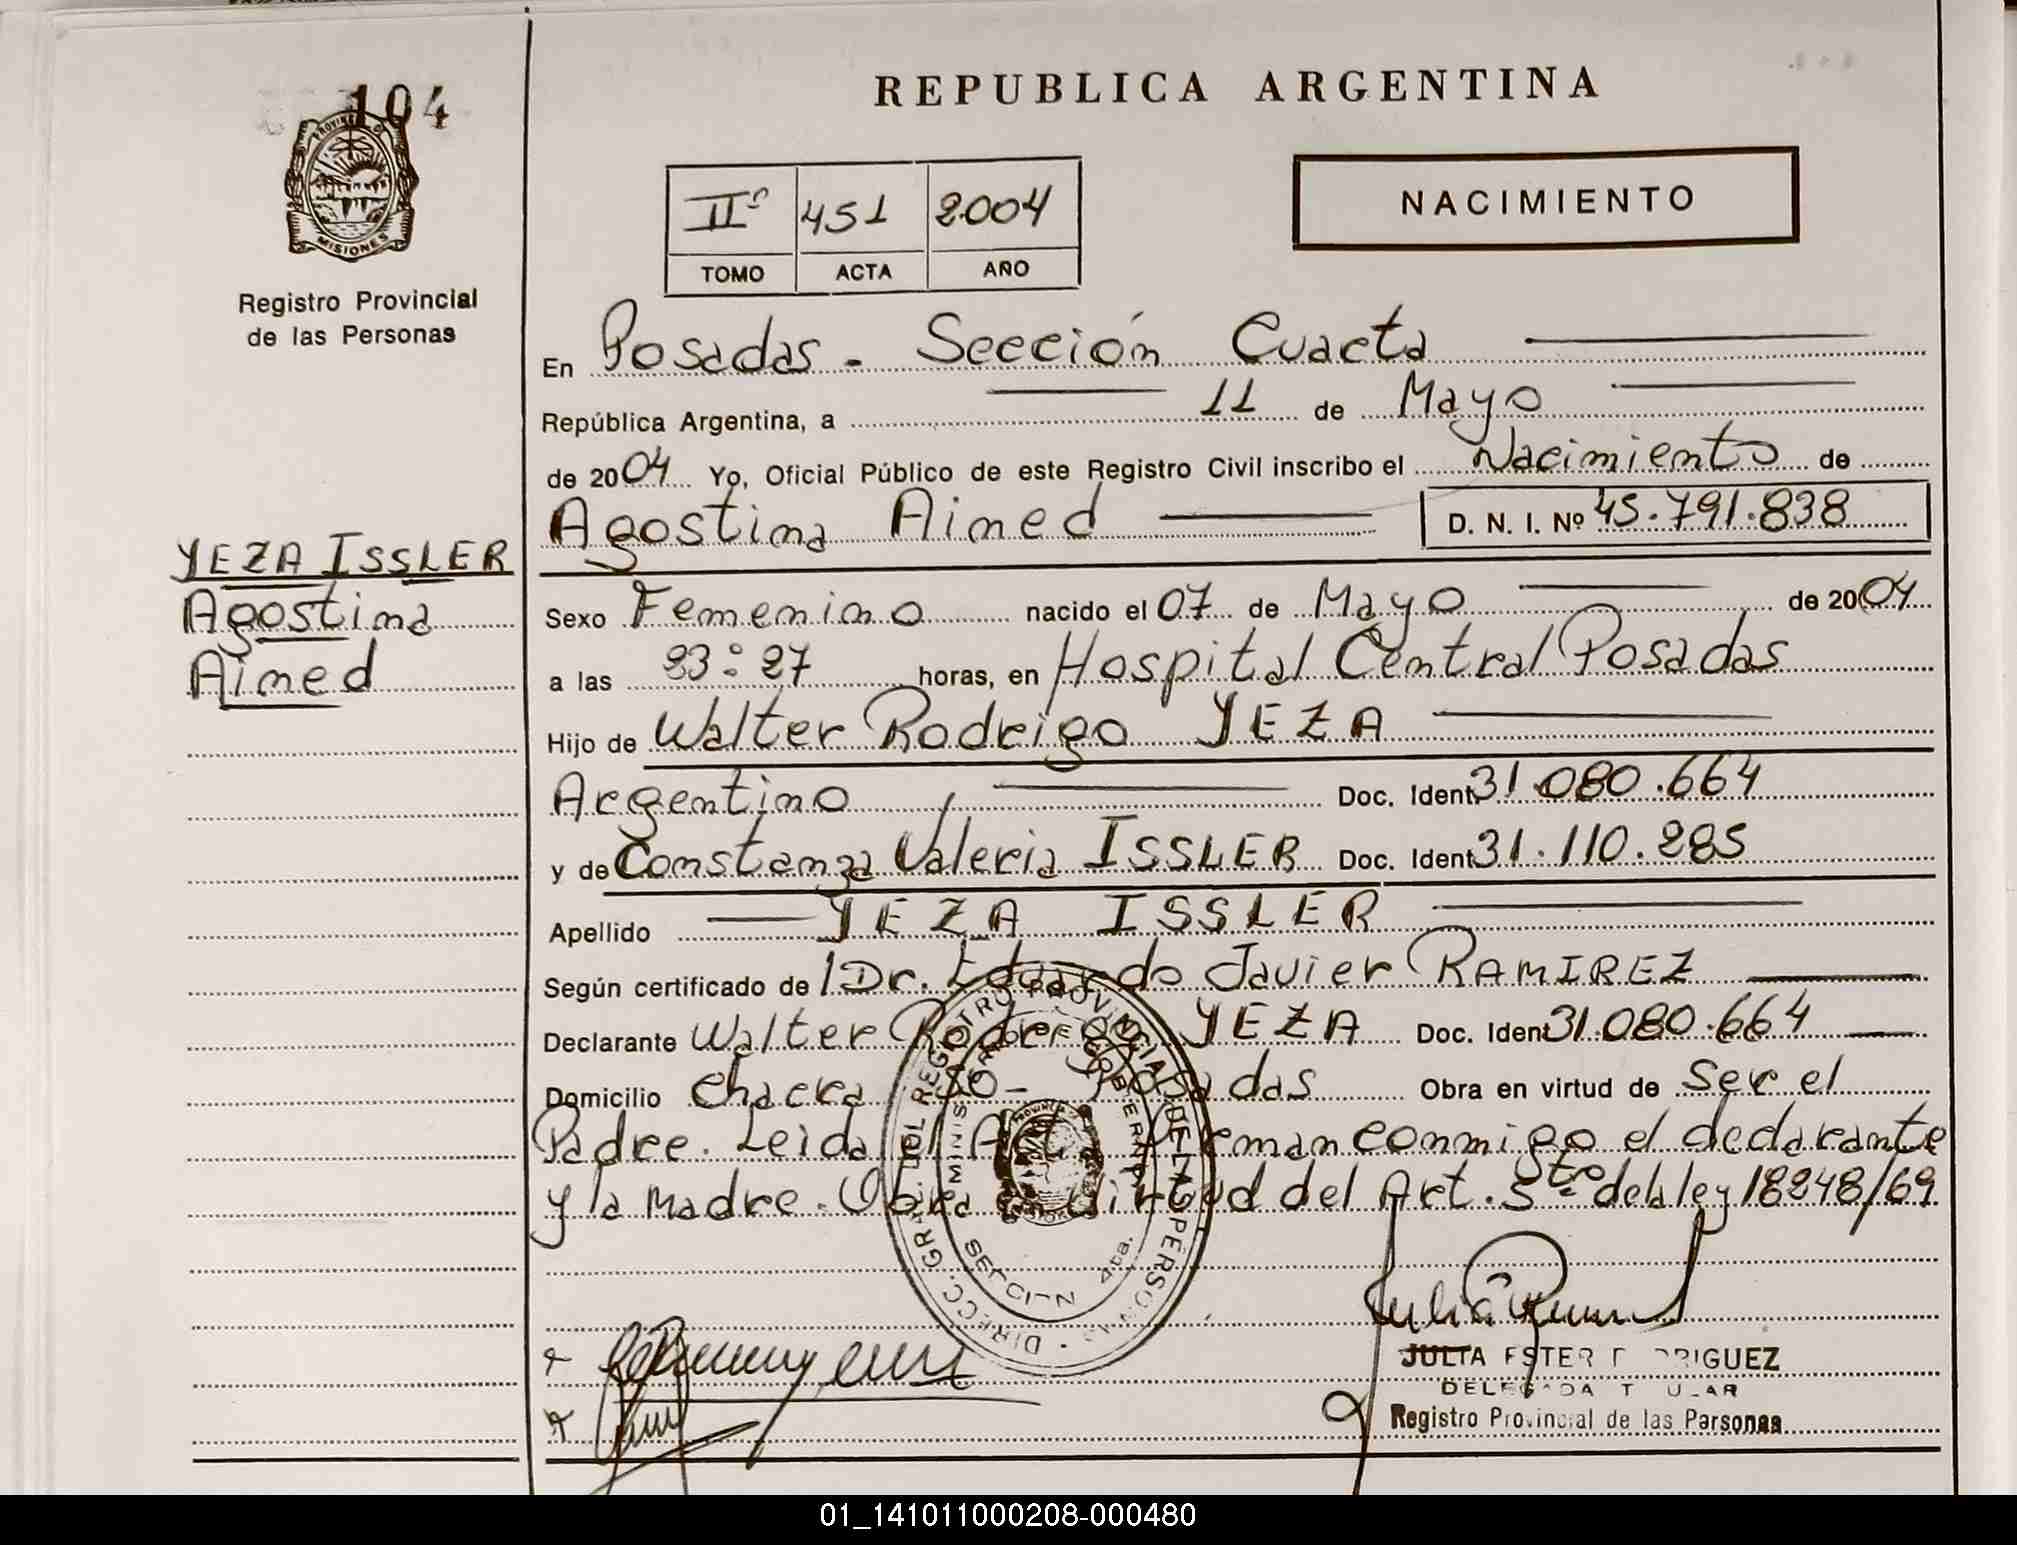 104
PROVINCIA DE
MISIONES
Registro Provincial
de las Personas
YEZA ISSLER
Agostina
Aimed
REPUBLICA ARGENTINA
NACIMIENTO
IIº 451 2004
TOMO ACTA AÑO
En Posadas - Sección Cuarta
República Argentina, a 11 de Mayo
de 2004 Yo, Oficial Público de este Registro Civil inscribo el Nacimiento de
Agostina Aimed D. N. I. Nº 45.791.838
Sexo Femenino nacido el 07 de Mayo de 2004
a las 23:27 horas, en Hospital Central Posadas
Hijo de Walter Rodrigo YEZA
Argentino Doc. Ident. 31.080.664
y de Constanza Valeria ISSLER Doc. Ident. 31.110.285
Apellido YEZA ISSLER
Según certificado de Dr. Eduardo Javier RAMIREZ
Declarante Walter Rodrigo YEZA Doc. Ident. 31.080.664
Domicilio Chacra Posadas Obra en virtud de Ser el
Padre. Leida el Acta Firman conmigo el declarante
y la Madre. Obra en virtud del Art. 5to de la ley 18248/69
DIRECC. GRAL. DEL REGISTRO PROVINCIAL DE LAS PERSONAS
MINISTERIO DE GOBIERNO
SECCION 4ta.
JULIA ESTER RODRIGUEZ
DELEGADA TITULAR
Registro Provincial de las Personas
01_141011000208-000480